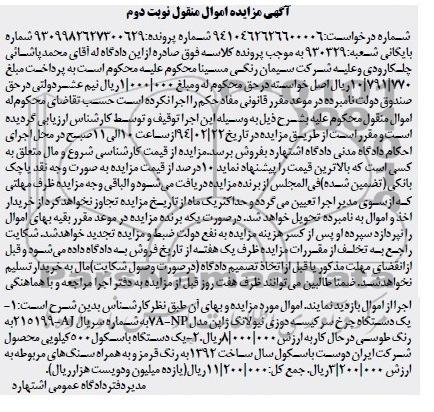 آگهی مزایده اموال منقول نوبت دوم
شماره درخواست: ۹۴۱۰۴۶۲۶۲۶۶۰۰۰۰۶ شماره پرونده: ۹۳۰۹۹۸۲۶۲۷۳۰۰۶۲۹ شماره
بایگانی شعبه: ۹۳۰۳۲۹ به موجب پرونده کلاسه فوق صادره از این دادگاه له آقای محمد پاشائی
چلکارودی و علیه شرکت سیمان رنگی مسینا محکوم علیه محکوم است به پرداخت مبلغ
ریال اصل خواسته در حق محکوم له و مبلغ ۱/۰۰۰/۰۰۰ ریال نیم عشر دولتی در حق
صندوق دولت نامبرده در موعد مقرر قانونی مفاد حکم را اجرا نکرده است حسب تقاضای محکوم له
اموال منقول محکوم علیه بشرح ذیل به وسیله این اجرا توقیف و توسط کارشناس ارزیابی گردیده
است و مقرر است از طریق مزایده در تاریخ ۹۴/۰۲/۲۲ از ساعت ۱۰ الی ۱۱ صبح در محل اجرای
احکام دادگاه مدنی دادگاه اشتهارد بفروش برسد. مزایده از قیمت کارشناسی شروع و مال متعلق به
کسی است که بالاترین قیمت را پیشنهاد نماید ۱۰ درصد از قیمت مزایده به صورت وجه نقد یا چک
بانکی (تضمین شده) فی المجلس از برنده مزایده دریافت می شود و الباقی وجه مزایده ظرف مهلتی
که از سوی مدیر اجرا تعیین می گردد و حداکثر یک ماه از تاریخ مزایده تجاوز نخواهد کرد از خریدار
اخذ و اموال به نامبرده تحویل خواهد شد. در صورت یکه برنده مزایده در موعد مقرر بقیه بهای اموال
را نپردازد سپرده او پس از کسر هزینه مزایده به نفع دولت ضبط و مزایده تجدید خواهد شد. شکایت
راجع به تخلف از مقررات مزایده ظرف یک هفته از تاریخ فروش به دادگاه داده می شود و قبل
از انقضای مهلت مذکور یا قبل از اتخاذ تصمیم دادگاه (در صورت وصول شکایت) مال به خریدار تسلیم
نخواهد شد. ضمنا طالبین می توانند ظرف هفت روز قبل از مزایده به دفتر اجرا مراجعه و با هماهنگی
اجرا از اموال بازدید نمایند. اموال مورد مزایده و بهای آن طبق نظر کارشناس بدین شرح است: ۱-
یک دستگاه چرخ سر کیسه دوزی نیولانگ ژاپن مدل ۷۸-NP به شماره سریال ۲۱۵۱۹۹-AJ به
رنگ طوسی در حال کار به ارزش ۸/۰۰۰/۰۰۰ ریال. ۲- یک دستگاه باسکول ۵۰۰ کیلویی محصول
شرکت ایران دوست باسکول سال ساخت ۱۳۹۲ به رنگ قرمز و به همراه سنگ های مربوطه به
ارزش ۳/۲۰۰/۰۰۰ ریال. جمع کل: ۱۱/۲۰۰/۰۰۰ ریال (یازده میلیون و دویست هزار ریال).
مدیر دفتر دادگاه عمومی اشتهارد